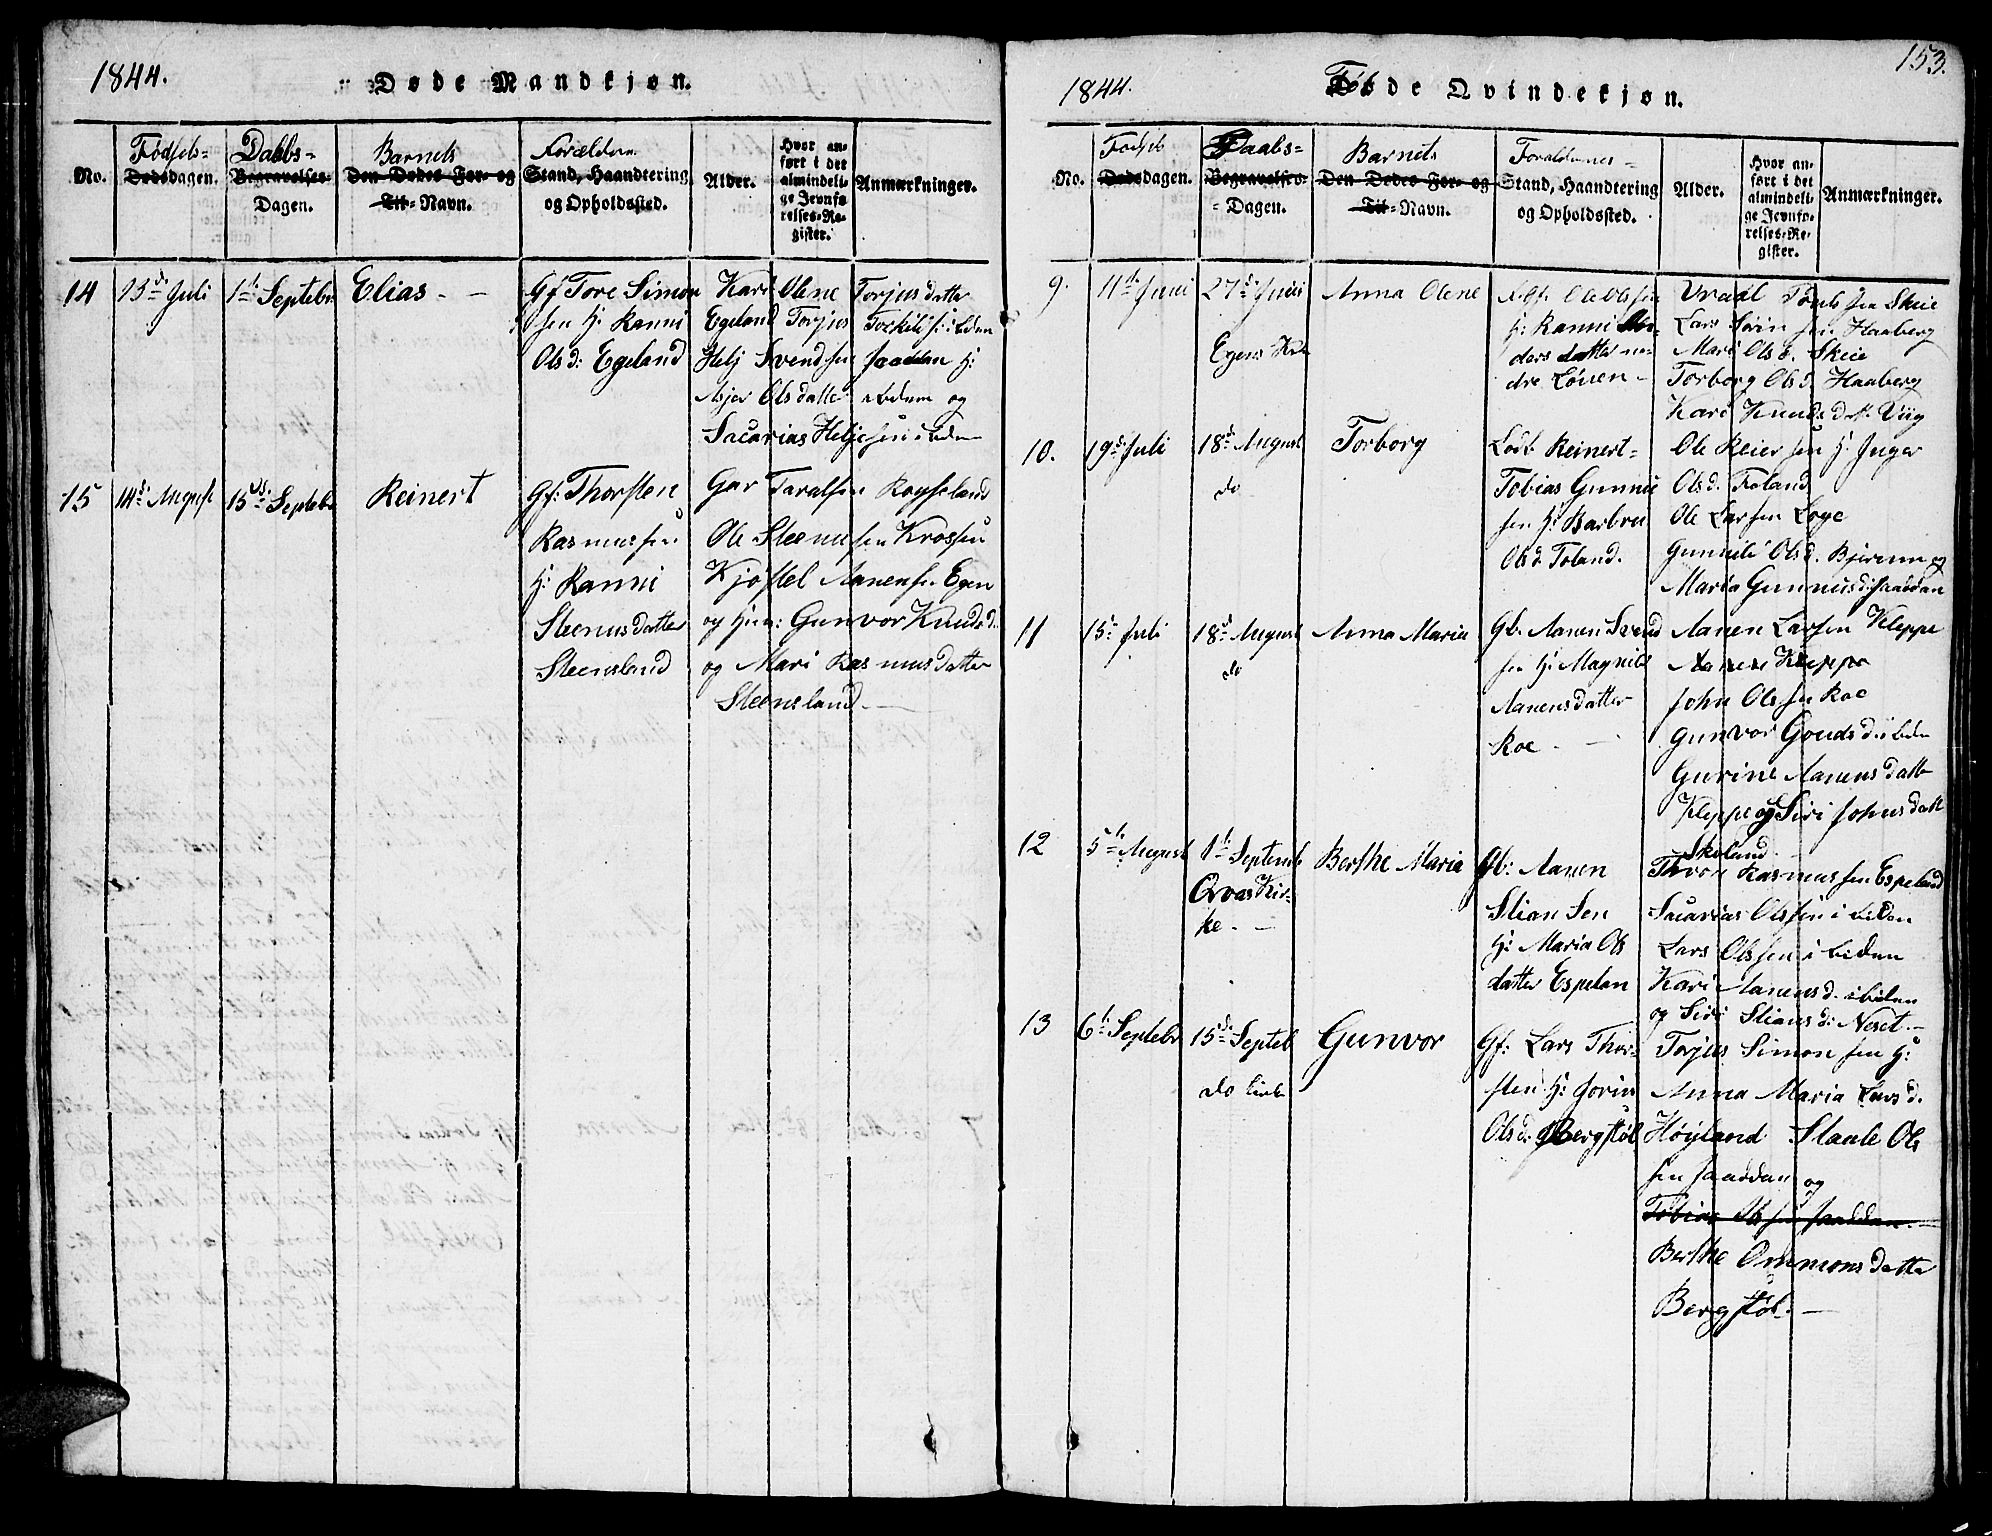 1844.
Døde Mandkjøn.
No.
Fødsels-
Dødsdagen.
Daabs-
Begravelses-
Dagen.
Barnets
Den Dødes For- og
Til-Navn.
Forældern
Stand, Haandtering
og Opholdssted.
Alder.
Hvor an-
ført i det
almindeli-
ge Jevnfø-
relses-Re-
gister.
Anmærkninger.
14
13de Juli
1te Septebr
Elias. -
Gf Tore Simon
sen H: Ranni
Olsd: Egeland
Kari Olene Torjusdatter
Egeland Torjus Torkils: ibiden
Helj Svendsen Faaddan H:
Asjer Olsdatter ibidem og
Sacarias Heljesen ibiden
15
14de August
15de Septebr
Reinert
Gf: Thorsten
Rasmussen
H: Ranni
Steenusdatter
Steensland
Gar Taralsen Royseland
Ole Steenusen Krossen
Kjøstel Aanensen Egen
og Hue: Gunvor Knudsd.
og Mari Rasmusdatter
Steensland.
153.
1844.
Føde Qvindekjøn.
No.
Fødsels
Dødsdagen.
Daabs-
Begravelses-
Dagen.
Barnets
Den Dødes For- og
Til-Navn.
Forældernes-
Stand, Haandtering
og Opholdssted.
Alder.
Hvor an-
ført i det
almindeli-
ge Jevnfø-
relses-Re-
gister.
Anmærkninger.
9.
11te Juni
27de Juni
Egens Kir
Anna Olene
Ole Olsen
H: Ranni An-
dersdatter ne-
dre Lønen-
Vraal Skeie
Lars Haaberg
Mari Olsd. Skeie
Torborg Olsd. Haaberg
Kari Knudsdtt. Viig
10.
19de Juli
18de August
do
Torborg
Lodt Reinert-
Tobias Gunnu
sen H: Barbru
Olsd. Foland.
Ole Reiersen H: Inger
Olsd. Foland
Ole Larsen Loge
Gunnild Olsd. Bjerum og
Maria Gunnusd: Faaddan
11
15de Juli
18de August
do
Anna Maria
Gb. Aanen Svend
sen H: Magnild
Aanensdatter
Roe. -
Aanen Larsen Kleppe
Aanen Kleppe
John Olssen Roe
Gunvor Goudsd: ibiden
Gurine Aanensdatt
Kleppe og Siri Johnsdatt
Skoland.
12
5te August
1te Septemb
Qvaas Kir-
ke. -
Berthe Maria
Gb: Aanen
Stian Sen
H: Maria Ols
datter Espelan
Thore Rasmussen Espeland
Sacarias Olssen ibiden
Lars Olssen ibiden
Kari Aanensd. ibiden
og Siri Stiansd: Neset. -
13
6te Septebr
15de Septeb
do
Gunvor
Gf: Lars Thor-
sten H: Jorin
Olsd: Bergstøl
Torjus Simonsen H:
Anna Maria Larsd.
Høyland Staale Ols
sen Faaddan og
Tobias Olsen Faaddan.
Berthe Ommonsdatter
Bergstøl. -